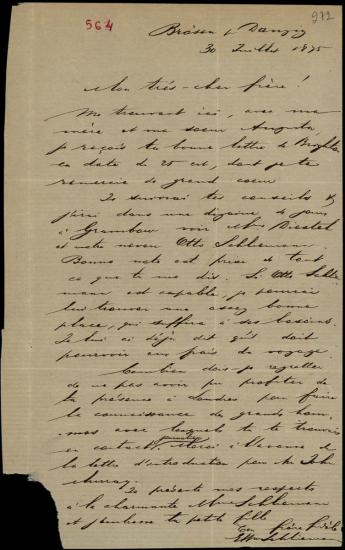 564
272
Brösen p Danzig
30 Juillet 1875
Mon très-cher frère!
Me trouvant ici, avec ma
mère et ma soeur Augusta,
je reçois ta bonne lettre de
en date de 25 ct, dont je te
remercie de grand coeur
Je suivrai tes conseils &
j'irai dans une dizaine de jours
à Grambow voir Mme
et notre neveu Otto Schliemann.
Bonne note est prise de tout
ce que tu me dis. Si Otto Schlie
mann est capable, je pourrais
lui trouver une assez bonne
place, qui suffira à ses besoins.
Je lui ai déjà dit qu'il doit
pourvoir aux frais du voyage.
Combien dois-je regretter
de ne pas avoir pu profiter de
ta présence à Londres pour faire
la connaissance de grands hom
mes avec lesquels tu te trouves
en contact. Merci à l'avance de
la lettre d'introduction pour Mr John
Murray.
Je présente mes respects
à la charmante Mme Schliemann
et j'embrasse ta petite fille
Ton frère fidèle
Schliemann